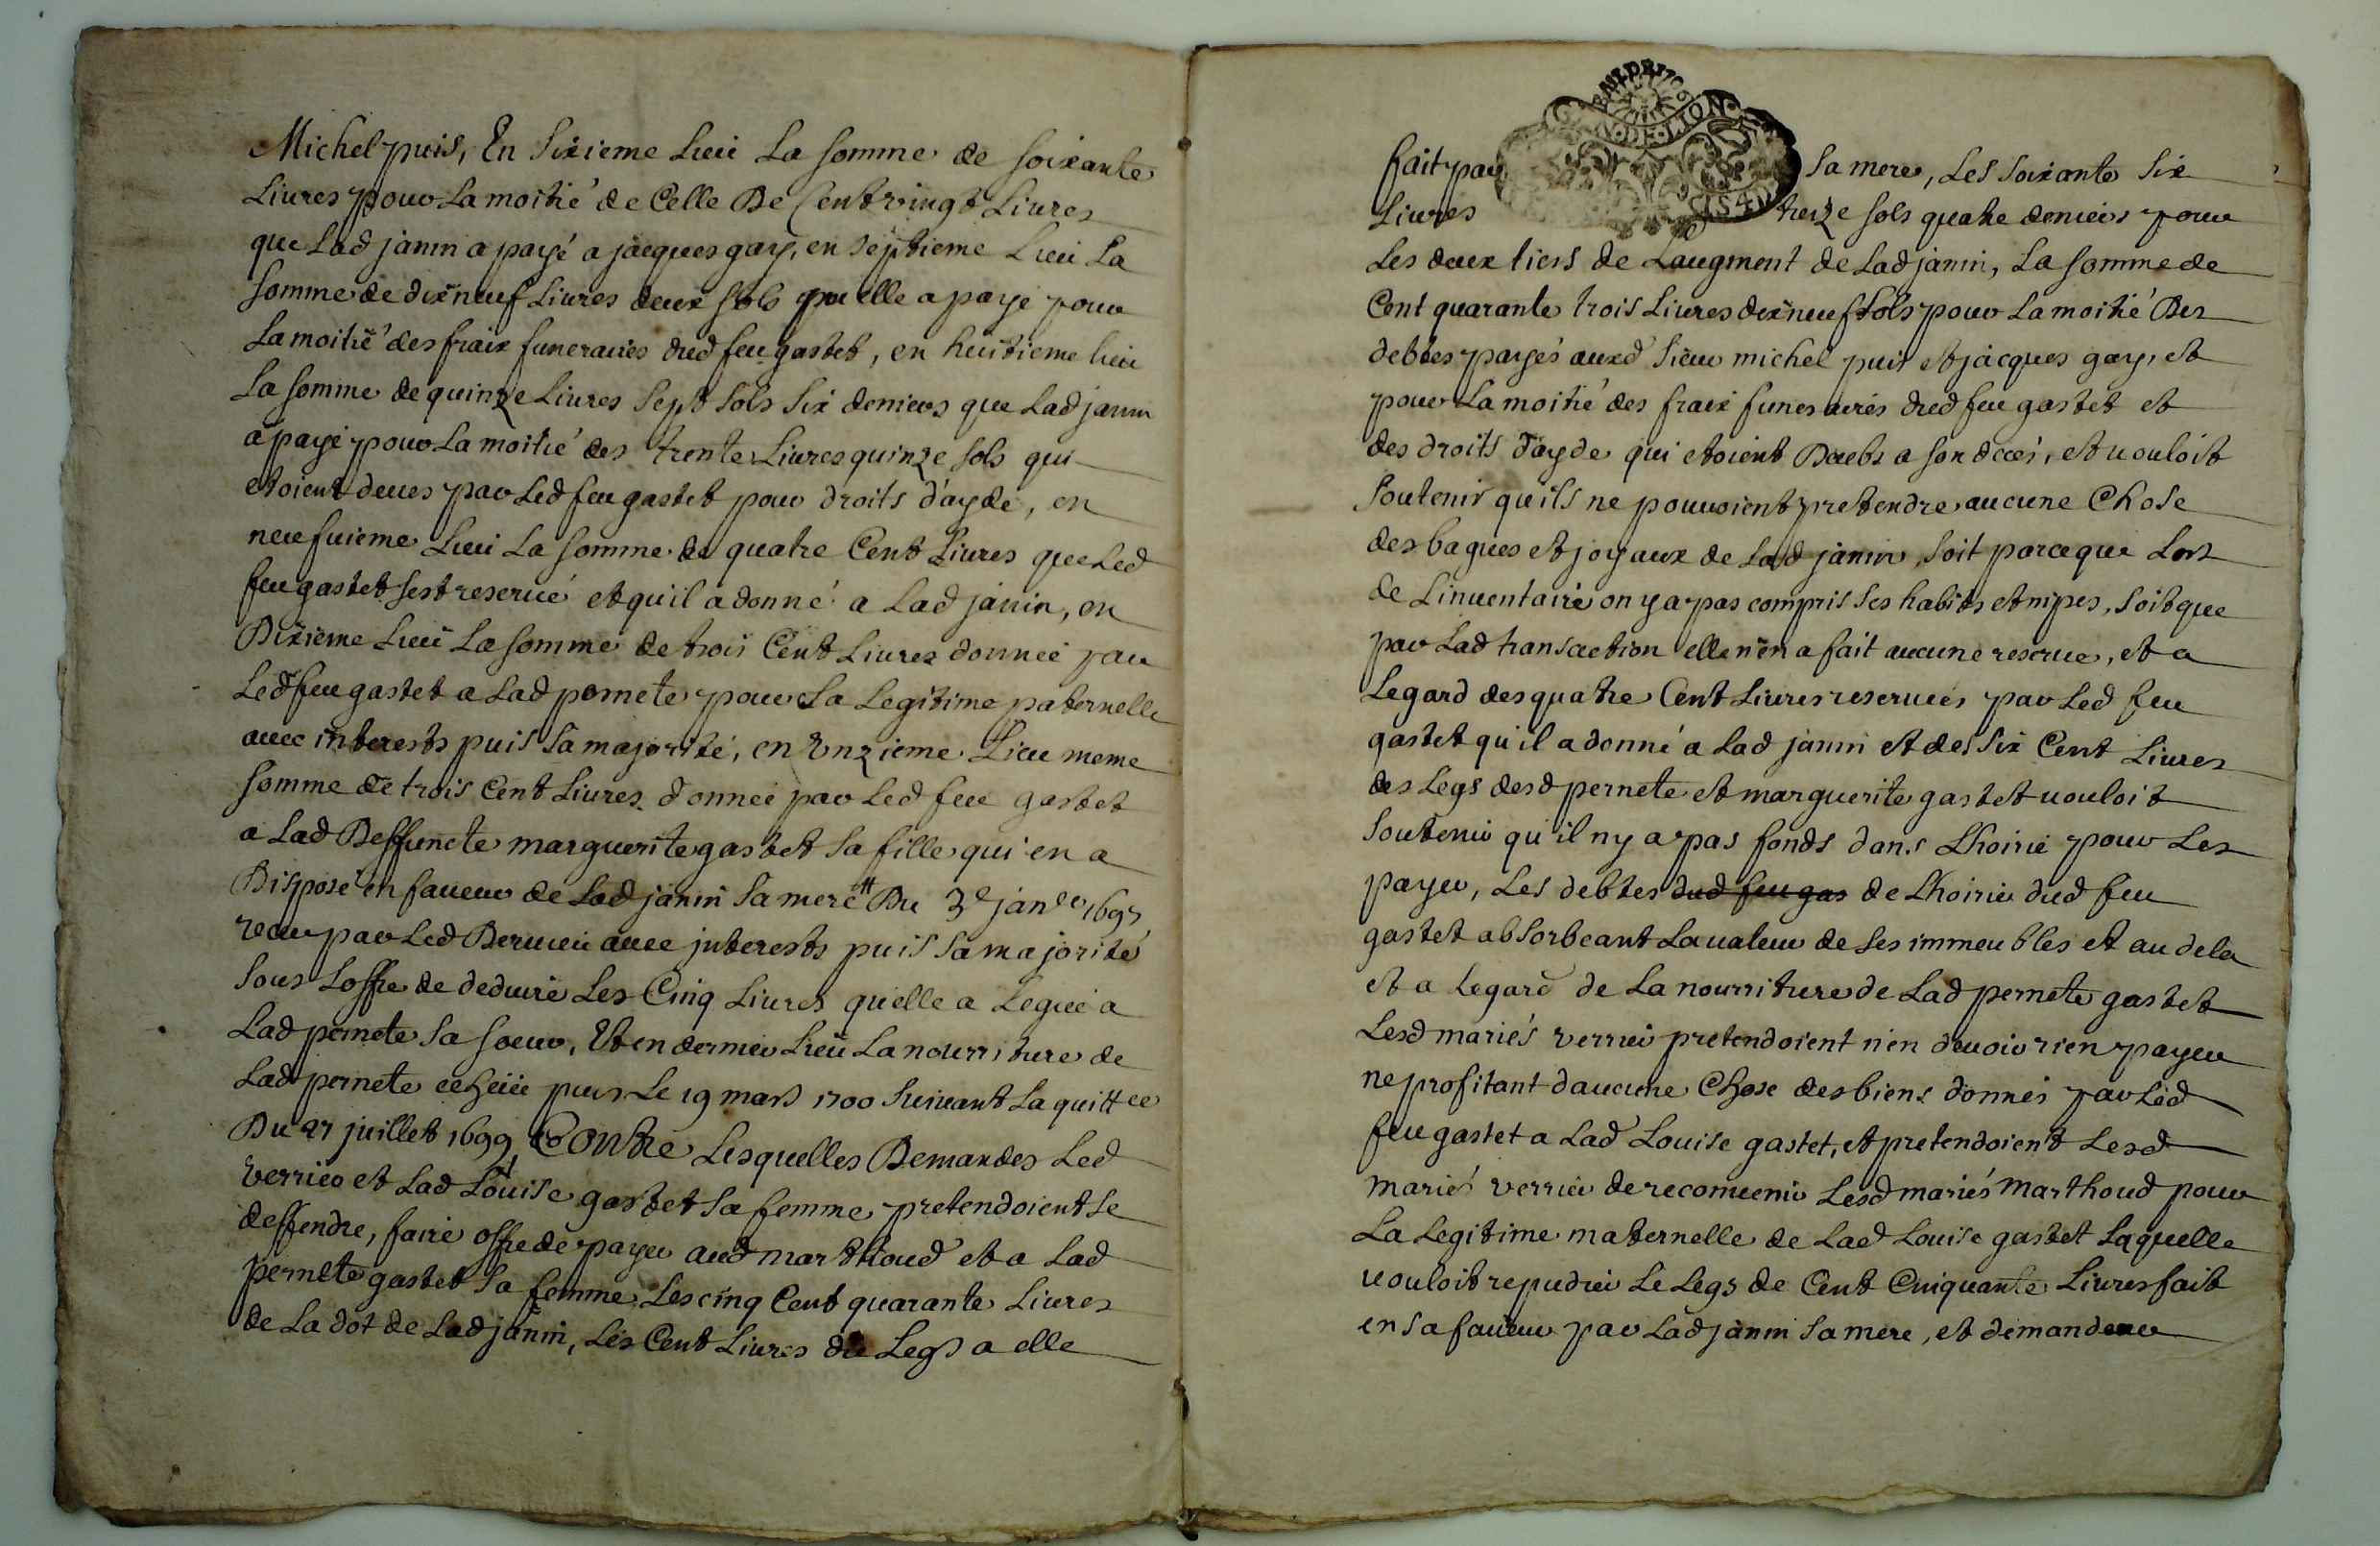 Michel puis, En Sixieme Lieu La somme de soixante
Liures pour La moitié de Celle De Cent vingt Liures
que Lad janin a payé a jacques gay, en septieme Lieu La
somme de dix neuf Liures deux sols qu elle a payé pour
La moitié des fraix funeraires dud feu gastet, en huitieme lieu
La somme de quinze Liures Sept sols six deniers que Lad janin
a payé pour La moitié des trente Liures quinze sols qui
etoient deues par Led feu gastet pour droits d'ayde, en
neufuieme Lieu La somme de quatre Cent Liures que Led
feu gastet s'est reserué et qu'il a donné a Lad janin, en
Dixieme Lieu La somme de trois Cent Liures donnée par
Led feu gastet a Lad pernete pour sa Legitime paternelle
auec interests puis sa majorité, en Unzieme Lieu meme
somme de trois Cent Liures donnée par Led feu gastet
a Lad Deffuncte marguerite gastet sa fille qui en a
Disposé en faueur de Lad janin sa mere Du 3e janer 1697
receu par Led Beruieu auec jnterests puis sa majorité
sous Loffre de deduire Les Cinq Liures qu'elle a Legué a
Lad pernete sa soeur, Et en dernier Lieu La nourriture de
Lad pernete echeüe puis Le 19 mars 1700 suiuant La quittce
Du 27 juillet 1699, Contre Lesquelles Demandes Led
verrier et Lad Louise gastet sa femme pretendoient se
deffendre, faire offre de payer aud marthoud et a Lad
pernete gastet sa femme Les cinq Cent quarante Liures
de La dot de Lad janin, Les Cent Liures du Legs a elle
fait par sa mere, Les soixante six
Liures treize sols quatre deniers pour
Les deux tiers de L'augment de Lad janin, La somme de
Cent quarante trois Liures dix neuf sols pour La moitié Des
debtes payés auxd sieur michel puis et jacques gay, et
pour La moitié des fraix funeraires dud feu gastet et
des droits d'ayde qui etoient Deubs a son decés, et vouloit
soutenir qu'ils ne pouuoient pretendre aucune Chose
des bagues et joyaux de Lad janin, soit parceque Lors
de Linuentaire on y a pas compris ses habits et nipes, soit que
par Lad transaction elle n'en a fait aucune reserue, et a
Legard des quatre Cent Liures reseruées par Led feu
gastet qu'il a donné a Lad janin et des six Cent Liures
des Legs desd pernete et marguerite gastet vouloit
soutenir qu'il ny a pas fonds dans Lhoirie pour Les
payer, Les debtes dud feu gas de Lhoirie dud feu
gastet absorbeant La ualeur de ses immeubles et au dela
et a legard de La nourriture de Lad pernete gastet
Lesd mariés verrier pretendoient n'en deuoir rien payer
ne profitant d'aucune Chose des biens donnés par Led
feu gastet a Lad Louise gastet, et pretendoient Lesd
mariés verrier de reconuenir Lesd mariés Marthoud pour
La Legitime maternelle de Lad Louise gastet Laquelle
vouloit repudier Le Legs de Cent Cinquante Liures fait
en sa faueur par Lad janin sa mere, et demander